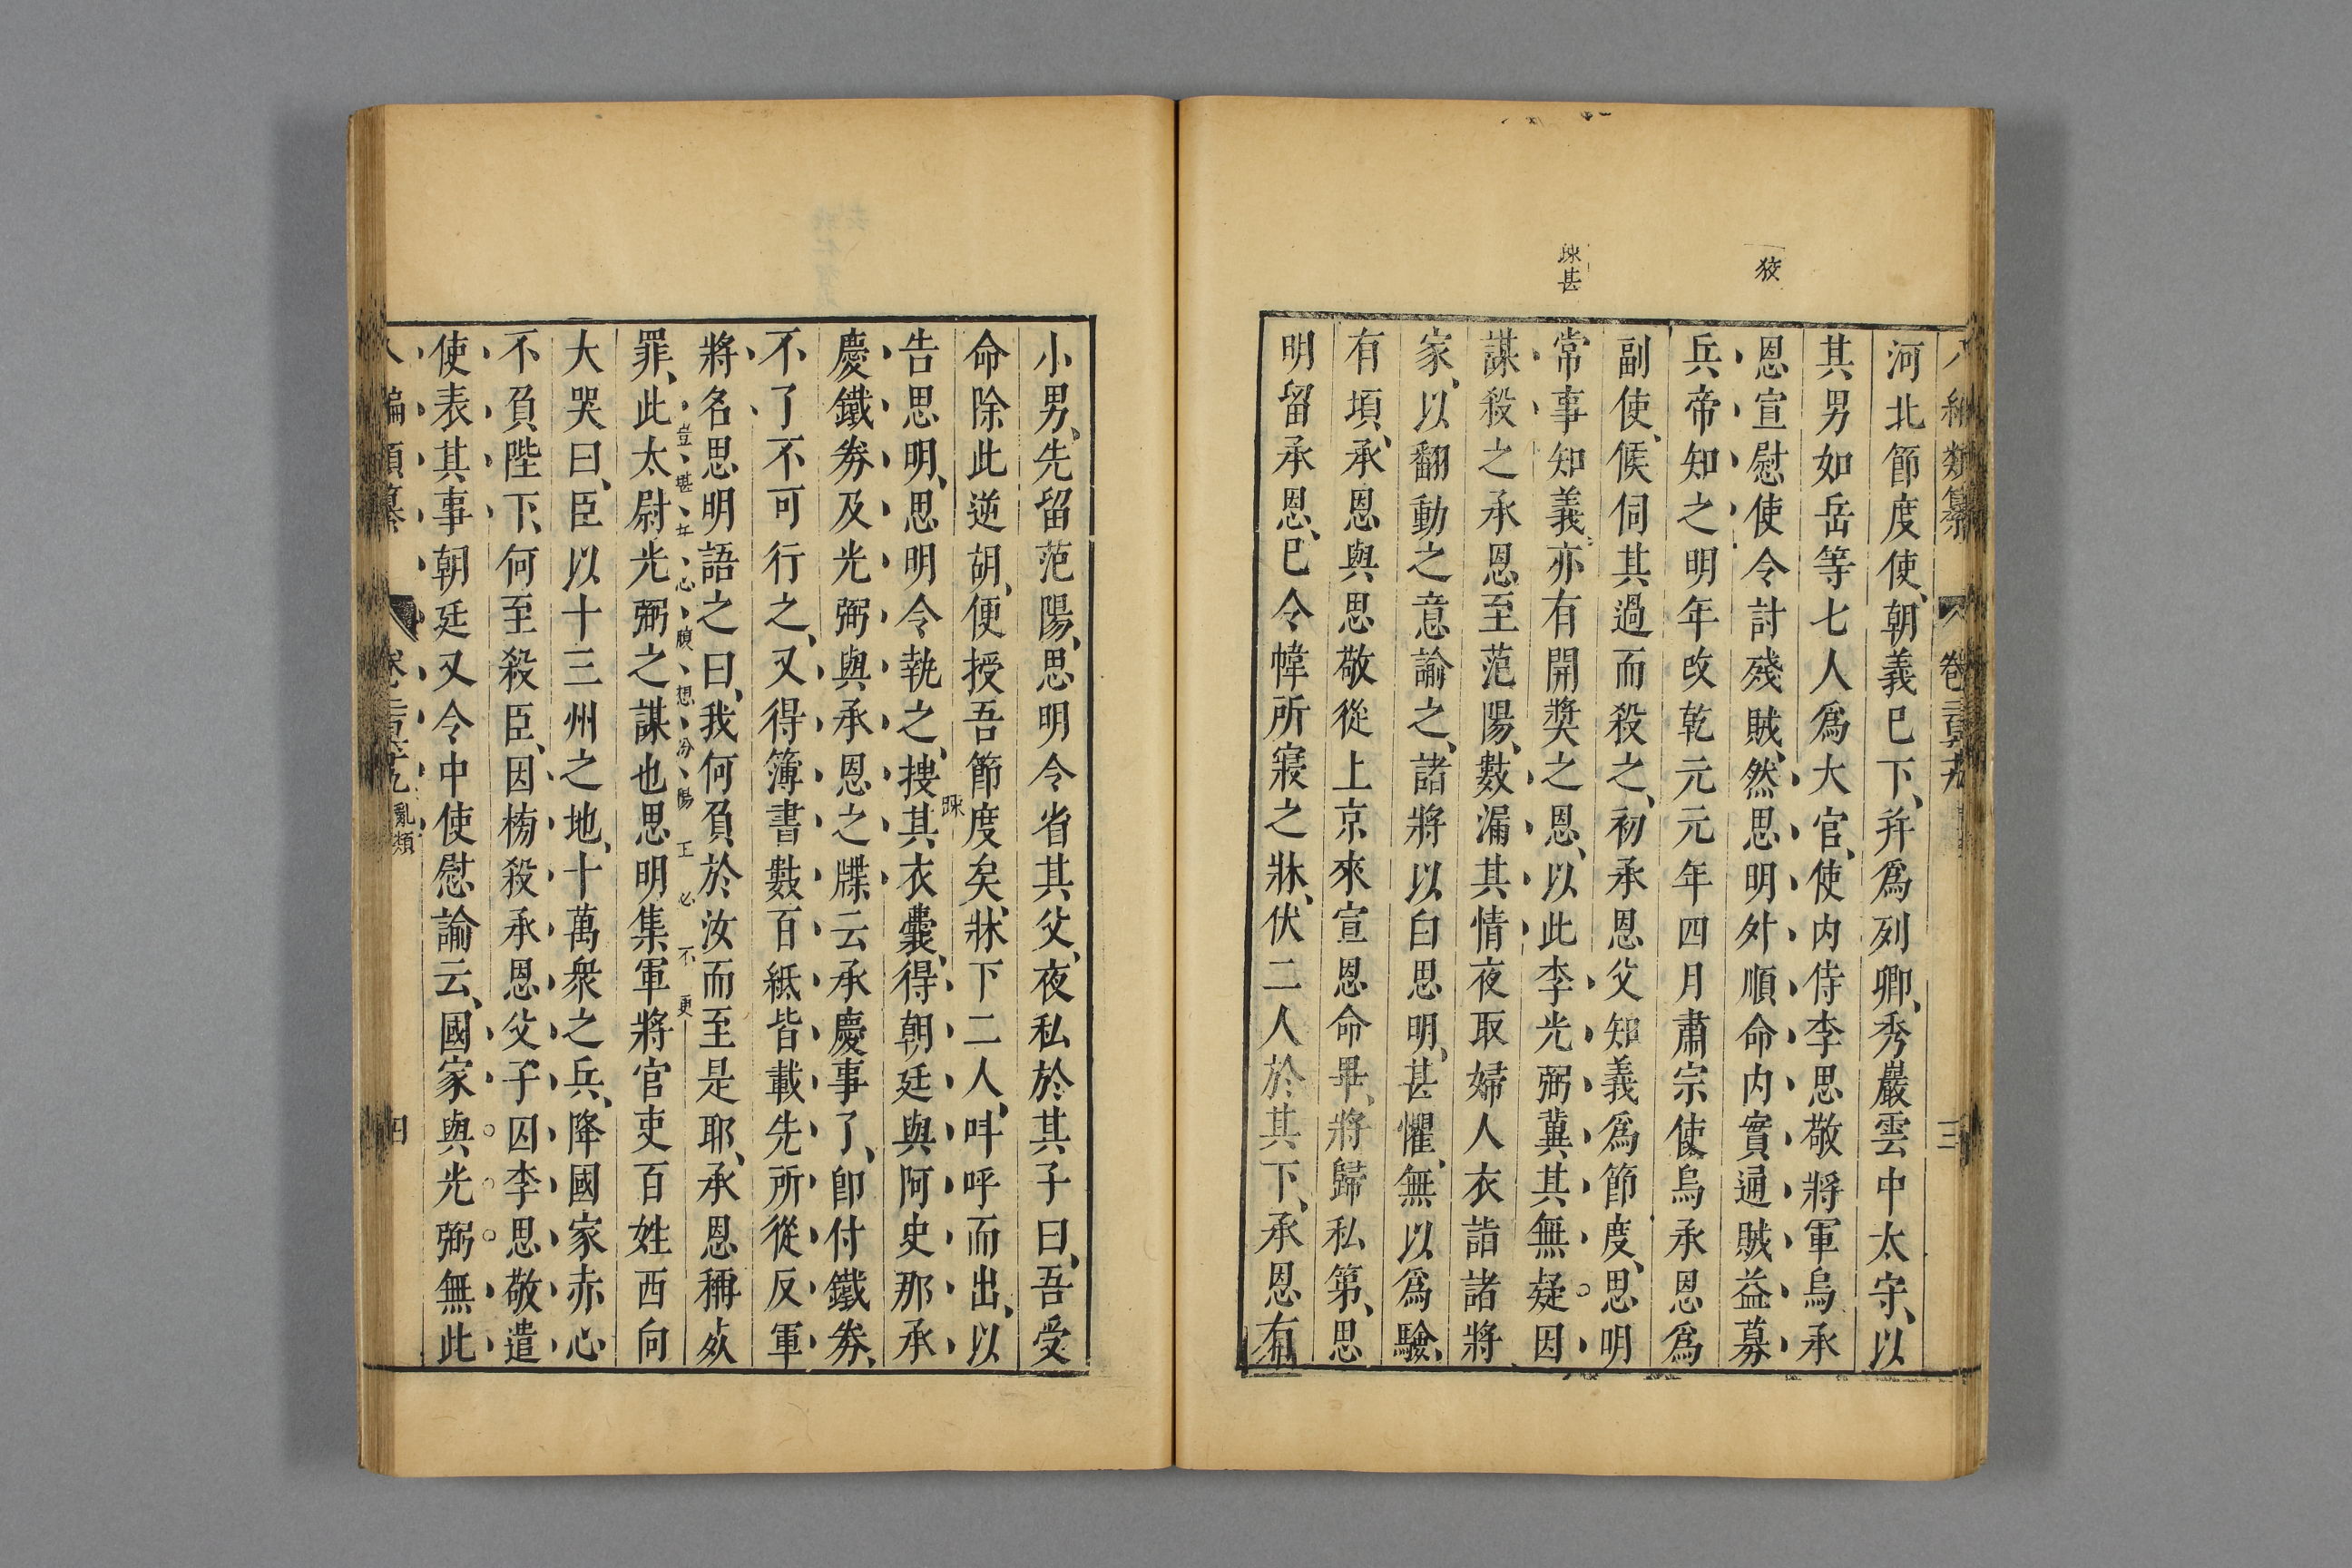 八編類纂 卷二百十九 三
狡
疎甚
河北節度使、朝義已下、并爲列卿、秀巖雲中太守、以
其男如岳等七人爲大官、使内侍李思敬將軍烏承
恩宣慰使令討殘賊、然思明外順命内實通賊益募
兵帝知之明年改乾元元年四月肅宗使烏承恩爲
副使、候伺其過而殺之、初承恩父知義爲節度、思明
常事知義亦有開獎之恩、以此李光弼冀其無疑因
謀殺之承恩至范陽、數漏其情夜取婦人衣詣諸將
家、以翻動之意諭之、諸將以白思明、甚懼、無以爲驗、
有頃、承恩與思敬從上京來宣恩命畢、將歸私第、思
明留承恩、已令幃所寢之牀、伏二人於其下、承恩有
小男、先留范陽、思明令省其父、夜私於其子曰、吾受
命除此逆胡、便授吾節度矣、牀下二人、呌呼而出、以
疎
告思明、思明令執之、搜其衣囊、得朝廷與阿史那承
慶鐵券及光弼與承恩之牒云承慶事了、卽付鐵券、
不了不可行之、又得簿書數百紙皆載先所從反軍
將名思明語之曰、我何負於汝而至是耶、承恩稱死
罪、此太尉光弼之謀也思明集軍將官吏百姓西向
大哭曰、臣以十三州之地、十萬衆之兵、降國家赤心
不負陛下、何至殺臣、因榜殺承恩父子囚李思敬遣
使表其事朝廷又令中使慰諭云、國家與光弼無此
八編類纂 卷二百十九 亂類 四